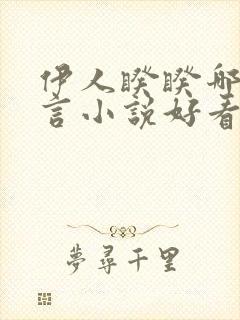 伊人睽睽那
言小説好看
夢尋千里